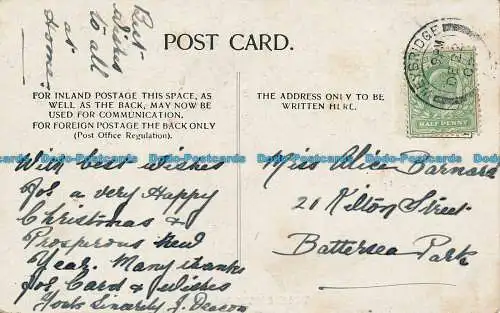 Best
wishes
to all
at
Home.
POST CARD.
FOR INLAND POSTAGE THIS SPACE, AS
WELL AS THE BACK, MAY NOW BE
USED FOR COMMUNICATION.
FOR FOREIGN POSTAGE THE BACK ONLY
(Post Office Regulation).
THE ADDRESS ONLY TO BE
WRITTEN HERE.
WEYBRIDGE
HALF PENNY
With best wishes
for a very Happy
Christmas &
Prosperous New
Year. Many thanks
for Card & Wishes
Yours Sincerely J. Deacon
Miss Alice Barnard
21 Kilton Street
Battersea Park
Dado-Postcards Dado-Postcards Dado-Postcards Dado-Postcards